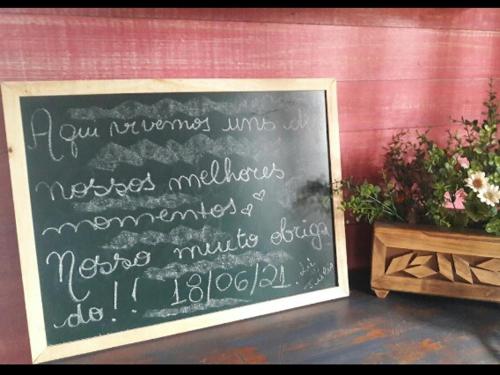 Aqui vivemos uns de
nossos melhores
momentos.
Nosso muito obriga
do!! 18/06/21.